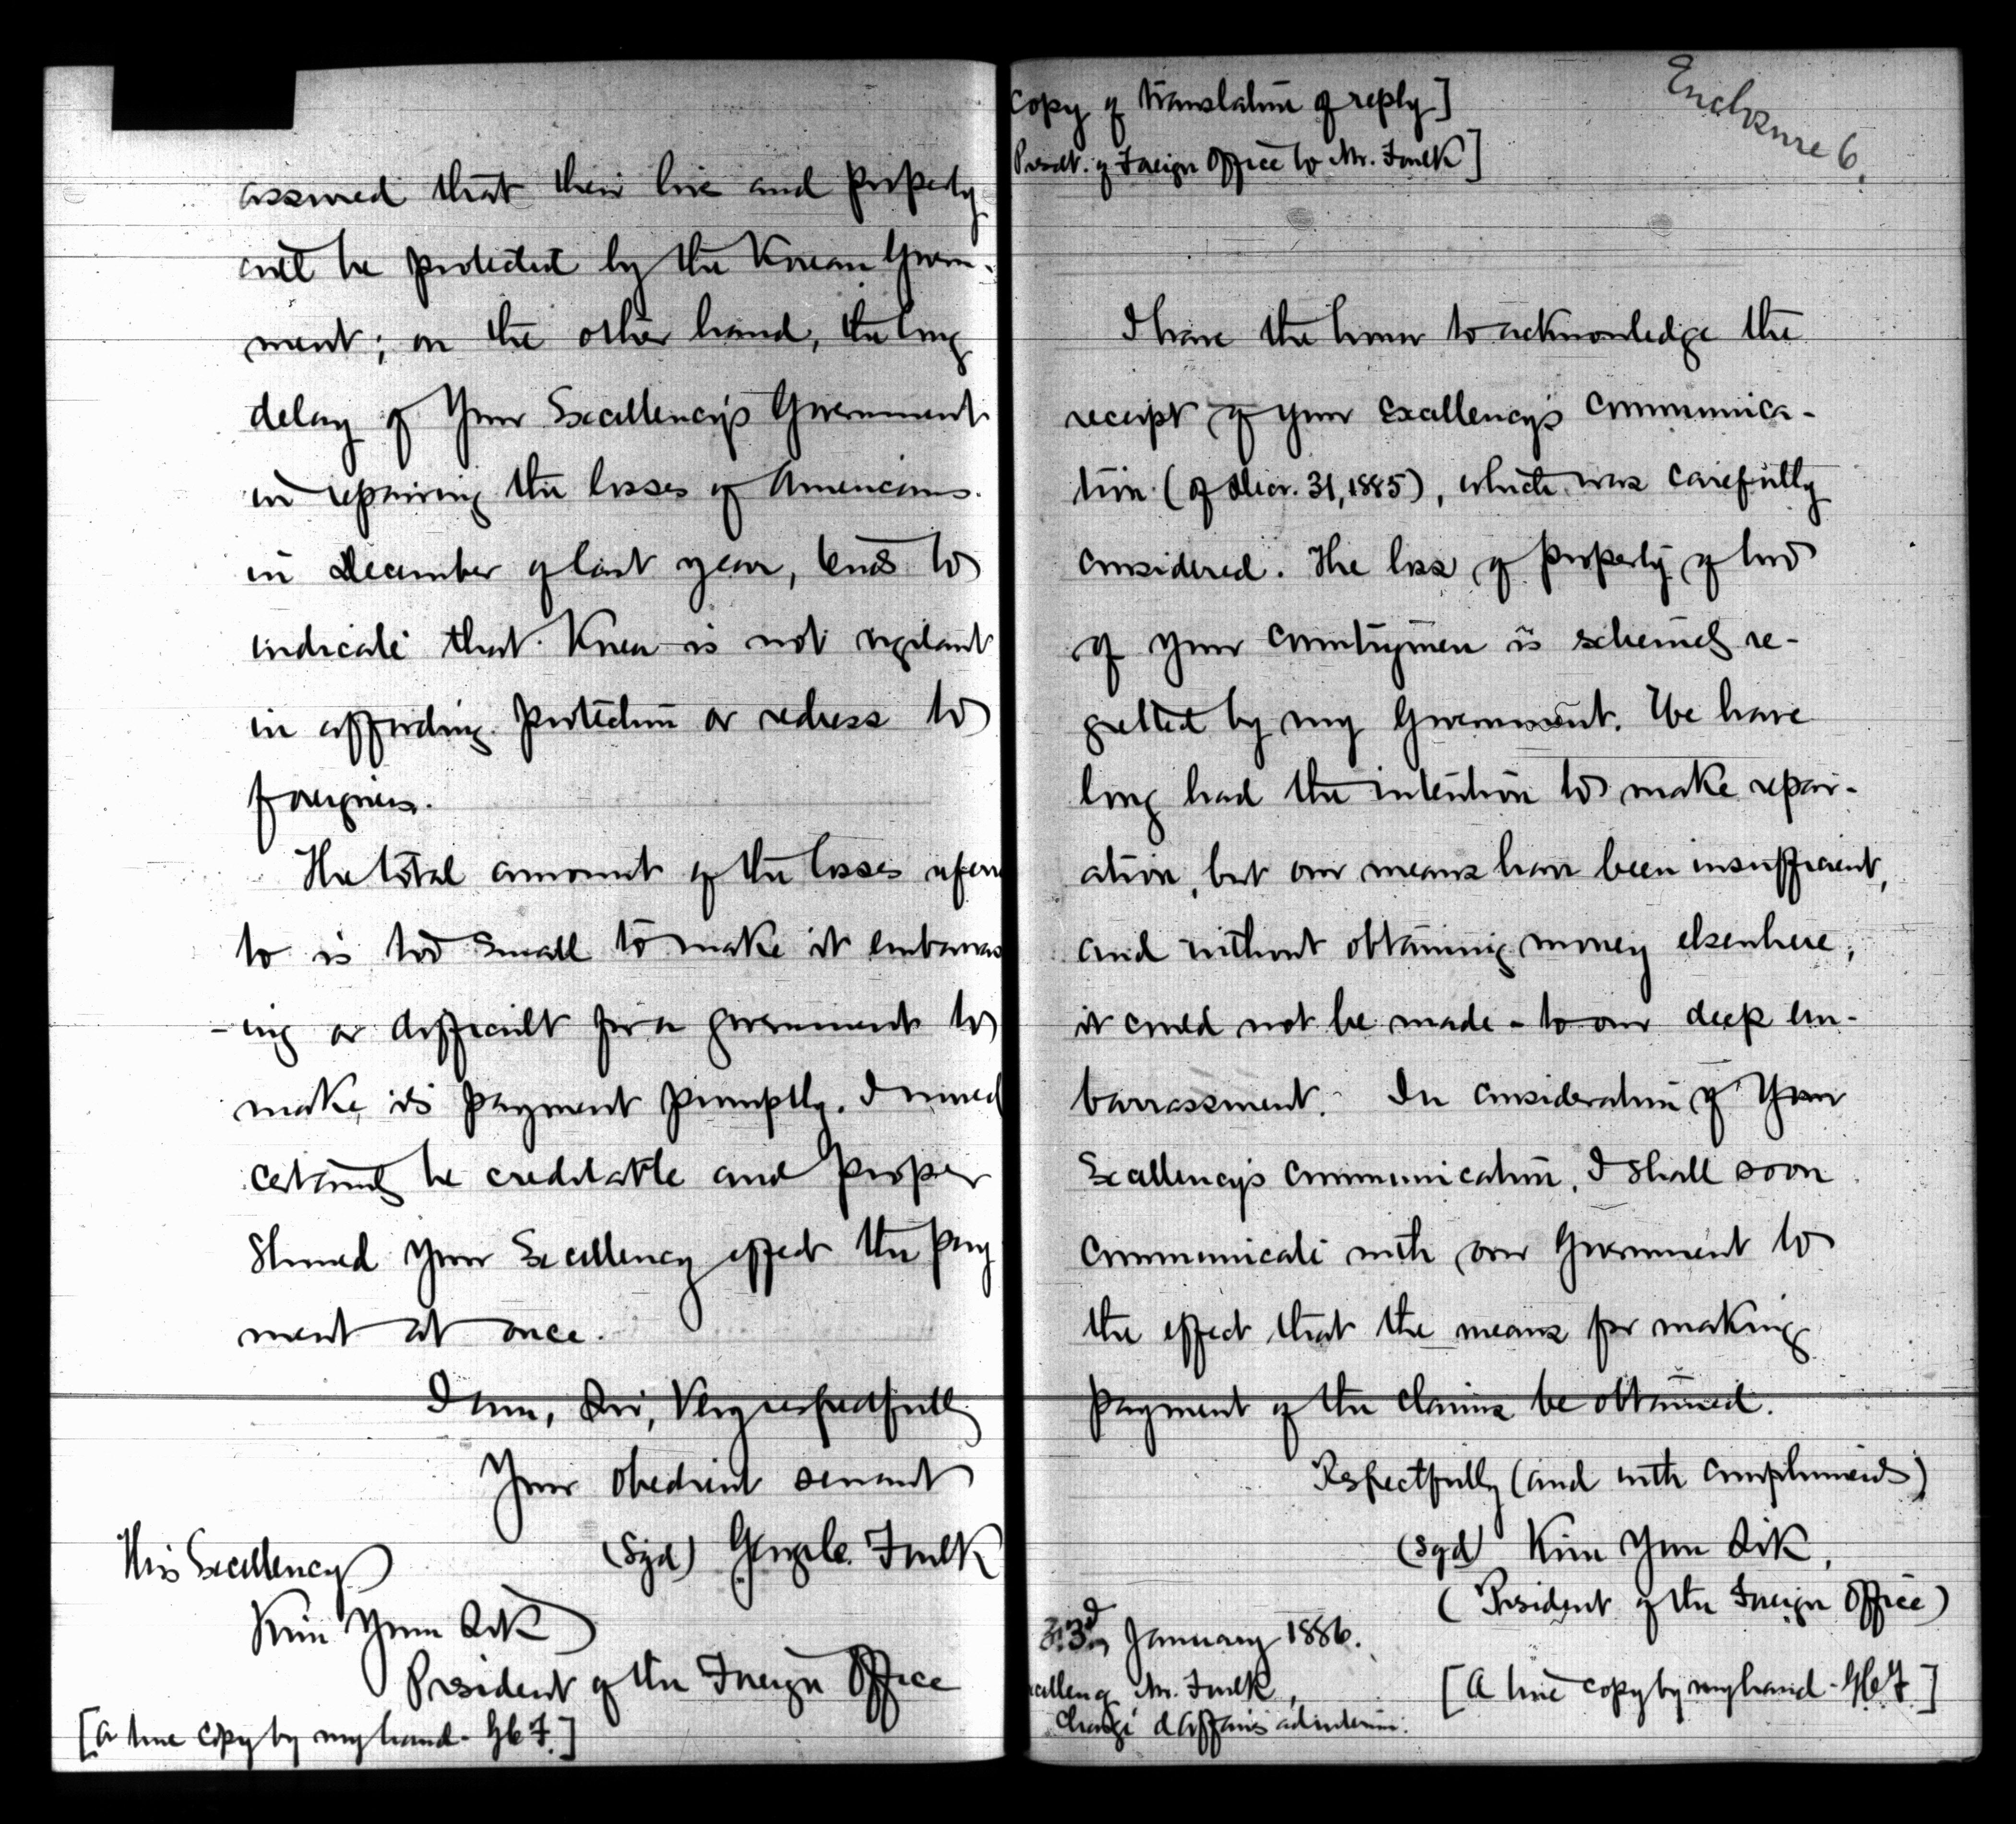 assured that their live and property
will be protected by the Korean Govern-
ment; on the other hand, the long
delay of Your Excellency's Government
in repairing the losses of Americans
in December of last year, tends to
indicate that Korea is not vigilant
in affording protection or redress to
foreigners.
The total amount of the losses referr
to is too small to make it embarrass
-ing or difficult for a government to
make its payment promptly. I
certainly be creditable and proper
should Your Excellency effect the pay
ment at once.
I am, Sir, Very respectfully
Your obedient servant
(Sgd) George C. Foulk
His Excellency
Kim Yun Sik
President of the Foreign Office
[A true copy by my hand - GCF.]
Enclosure 6.
Copy of translation of reply]
Presdt. of Foreign Office to Mr. Foulk]
I have the honor to acknowledge the
receipt of your Excellency's communica-
tion (of Dec. 31, 1885), which was carefully
considered. The loss of property of two
of your countrymen is extremely re-
gretted by my Government. We have
long had the intention to make repar-
ation, but our means have been insufficient,
and without obtaining money elsewhere,
it could not be made - to our deep em-
barrassment. In consideration of Your
Excellency's communication, I shall soon
communicate with our Government to
the effect that the means for making
payment of the claims be obtained.
Respectfully (and with compliments)
(Sgd) Kim Yun Sik,
(President of the Foreign Office)
3d, January 1886.
Mr. Foulk,
Chargé d'Affaires ad interim.
[A true copy by my hand - GCF.]